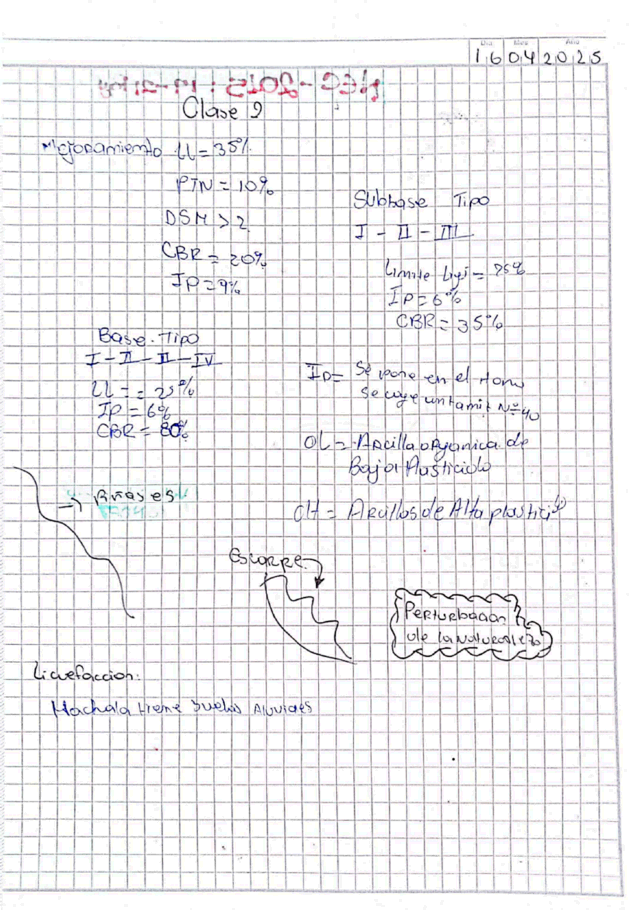 Dia Mes Año
16 04 2025
Clase 2
Mejoramiento LL = 35%
PTN = 10%
DSM > 2
CBR = 20%
IP = 9%
Subbase Tipo
I - II - III
Limite Liqi = 25%
IP = 6%
CBR = 35%
Base. Tipo
I - II - II - IV
LL = = 25%
IP = 6%
CBR = 80%
IP = Se pone en el Horno
Se coge un tamiz N= 40
OL = Arcilla organica de
Baja Plasticida
CH = Arcillas de Alta plasticid
Escarpe
Perturbacion
de la naturaleza
Licuefaccion:
Machala tiene Suelos Aluviales